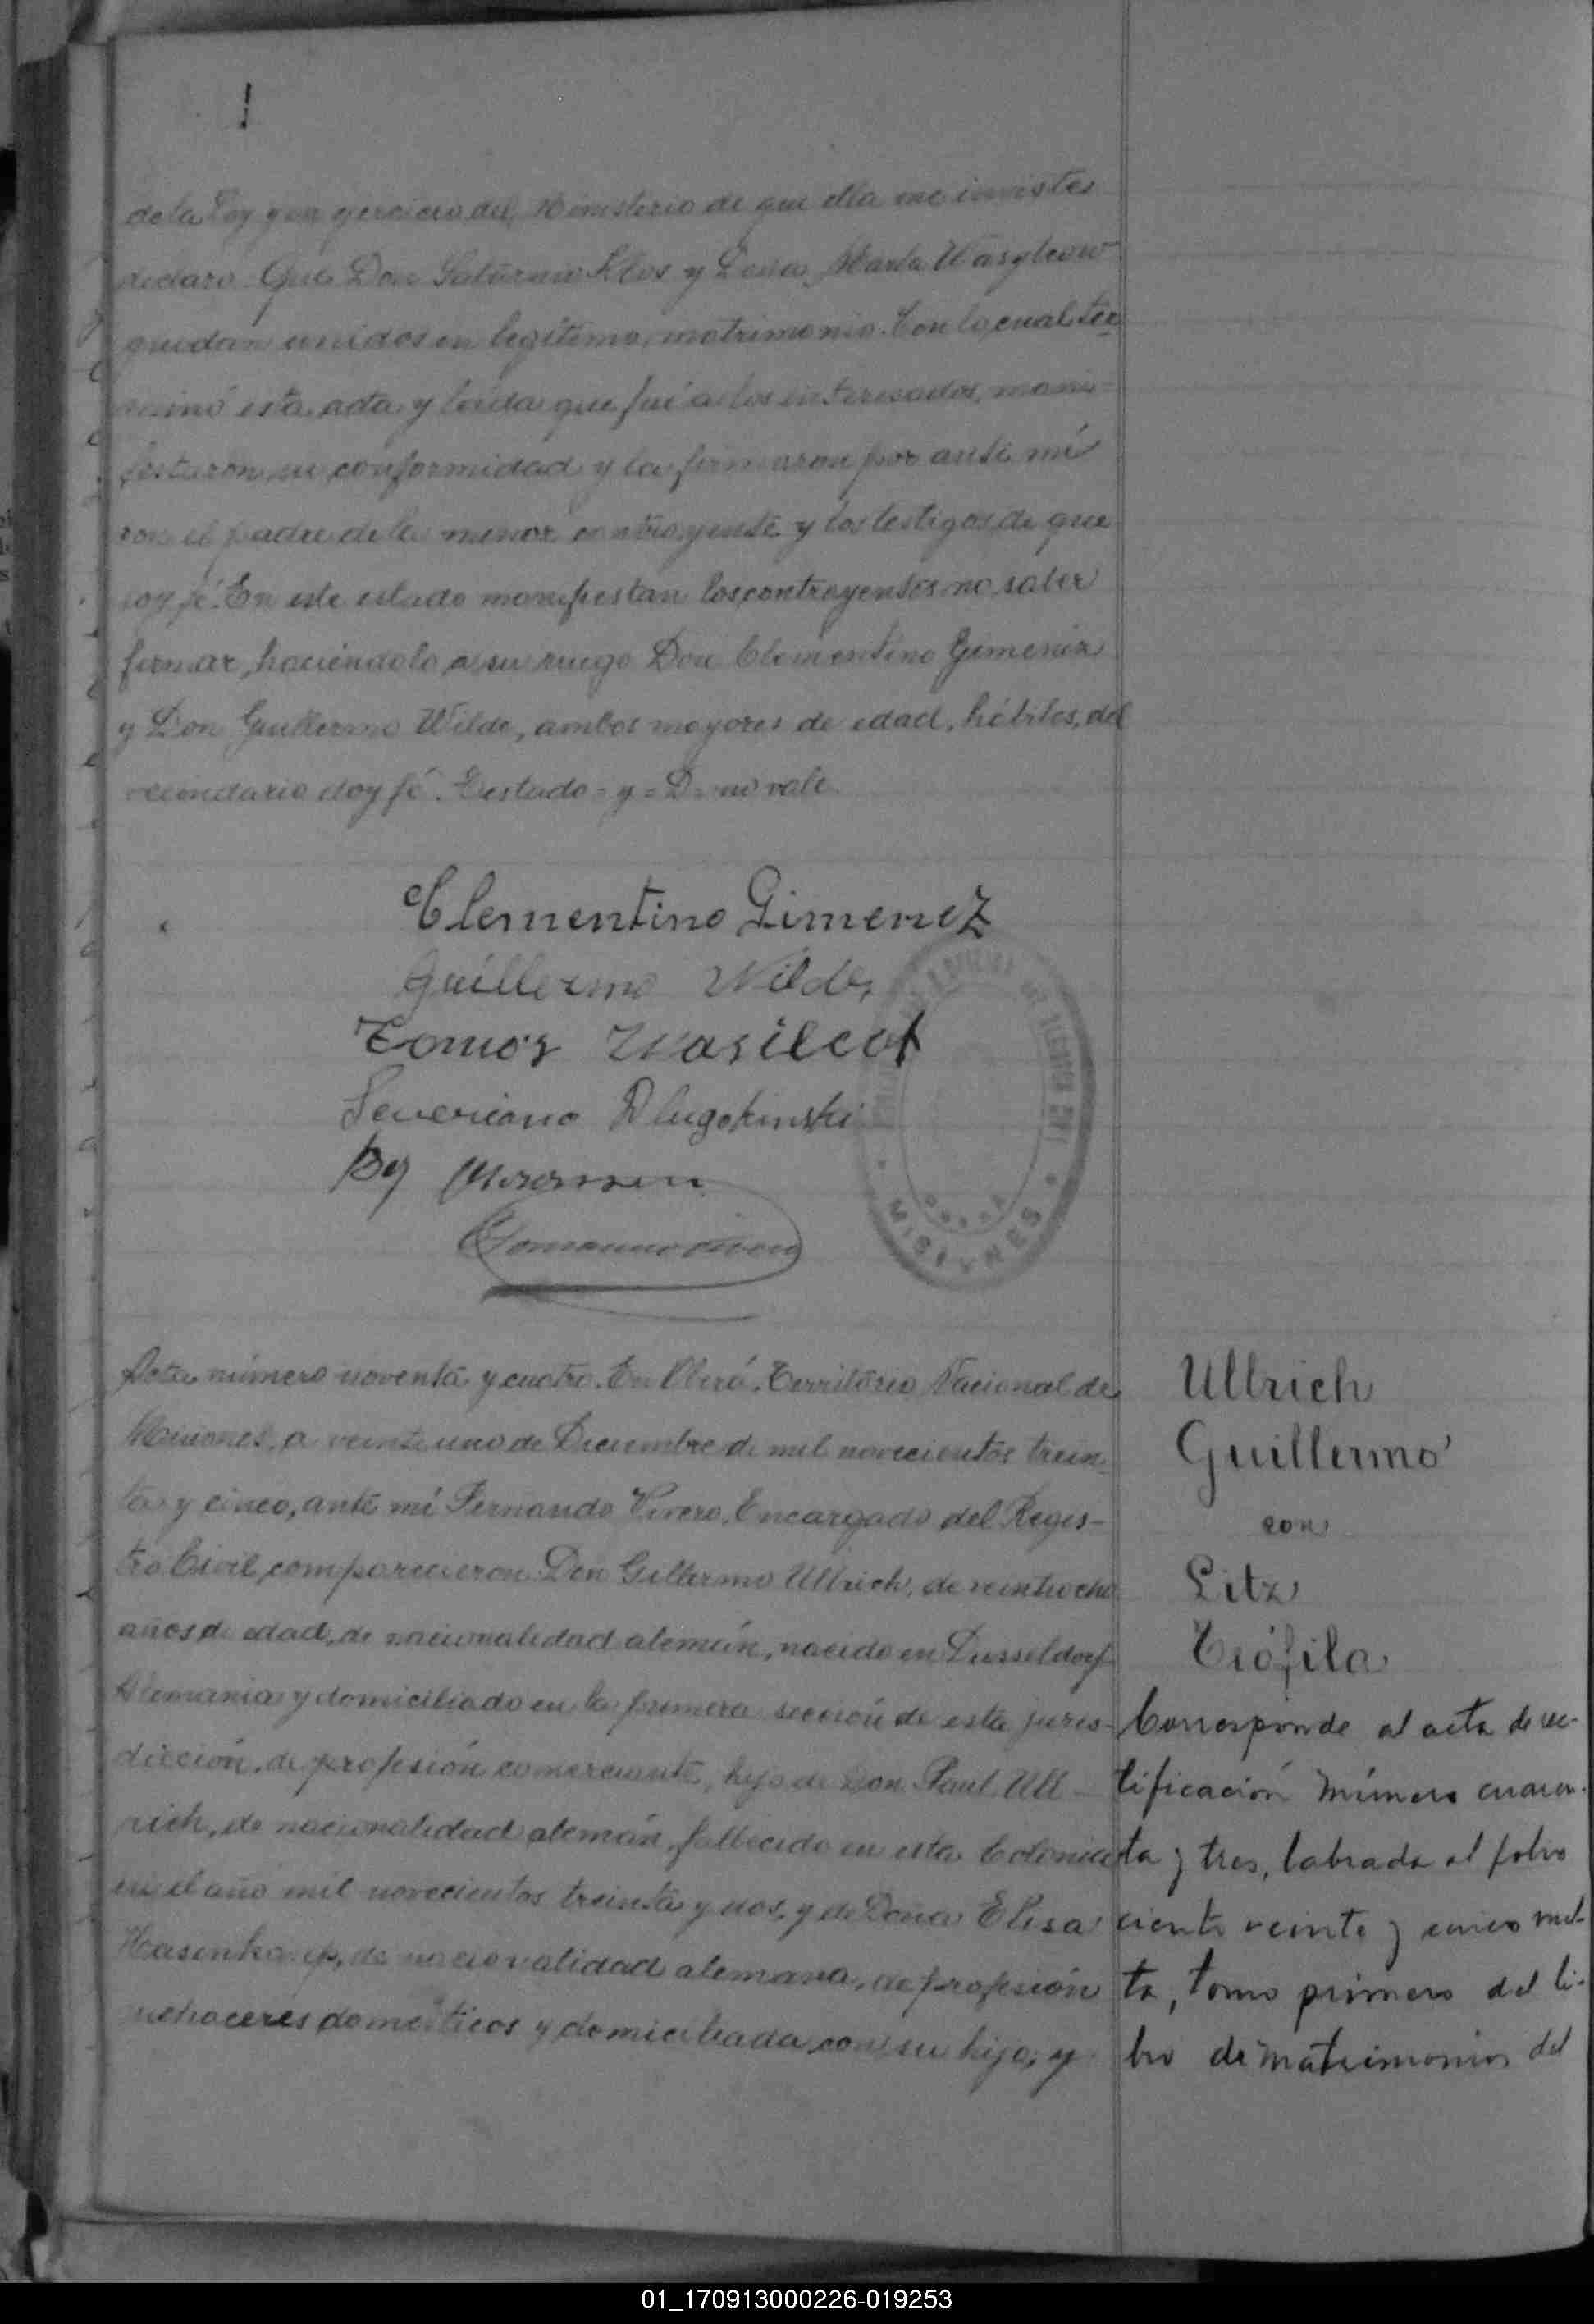 de la Ley y en ejercicio del Ministerio de que ella me inviste
declaro Que Don Saturnino Klos y Doña María Wasylcow
quedan unidos en legítimo matrimonio. Con lo cual ter
minó esta acta y leída que fué a los interesados, mani-
festaron su conformidad y la firmaron por ante mí
con el padre de la menor contrayente y los testigos de que
doy fé. En este estado manifiestan los contrayentes no saber
firmar, haciéndolo a su ruego Don Clementino Gimenez
y Don Guillermo Wilde, ambos mayores de edad, hábiles, del
vecindario doy fé. Testado = y = D = no vale.
Clementino Gimenez
Guillermo Wilde
Tomas Wasilcof
Severiano Dlugokinski
REGISTRO CIVIL
MISIONES
Acta número noventa y cuatro. En Oberá, Territorio Nacional de
Misiones, a veinte uno de Diciembre de mil novecientos trein-
ta y cinco, ante mí Fernando Vivero, Encargado del Regis-
tro Civil comparecieron Don Gillermo Ullrich, de veintiocho
años de edad, de nacionalidad alemán, nacido en Dusseldorf
Alemania y domiciliado en la primera sección de esta juris-
dicción, de profesión comerciante, hijo de Don Paul Ull-
rich, de nacionalidad alemán, fallecido en esta Colonia
en el año mil novecientos treinta y dos, y de Doña Elisa
Hasenkamp, de nacionalidad alemana, de profesión
quehaceres domésticos y domiciliada con su hijo; y
Ullrich
Guillermo
con
Litz
Teófila
Corresponde al acta de rec-
tificación número cuaren-
ta y tres, labrada al folio
ciento veinte y cinco vuel-
ta, tomo primero del li-
bro de matrimonios del
01_170913000226-019253